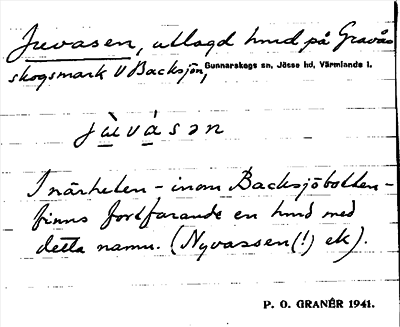 Juvasen, utlagd hmd på Gravås
skogsmark V Backsjön, Gunnarskogs sn, Jösse hd, Värmlands l.
jùvásən
I närheten – inom Backsjöbotten –
finns fortfarande en hmd med
detta namn. (Nyvassen(!) ek).
P. O. GRANÉR 1941.